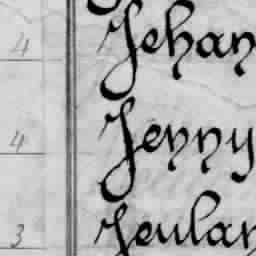 4 Jehan
4 Jenny
3 Jeulan